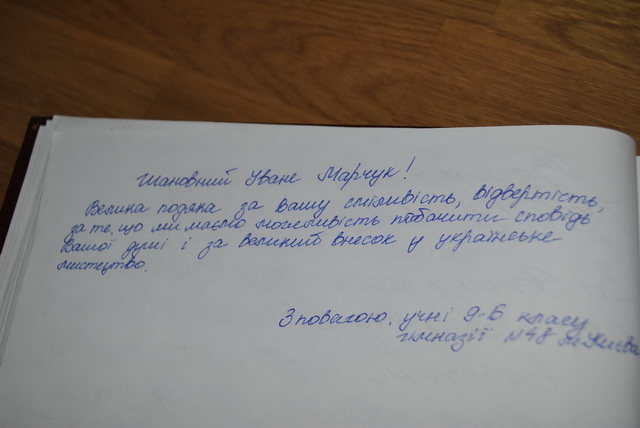 Шановний Іване Марчук!
Велика подяка за Вашу сміливість, відвертість,
за те, що ми маємо можливість побачити сповідь
Вашої душі і за великий внесок у українське
мистецтво.
З повагою, учні 9-Б класу
гімназії №48 м. Києва